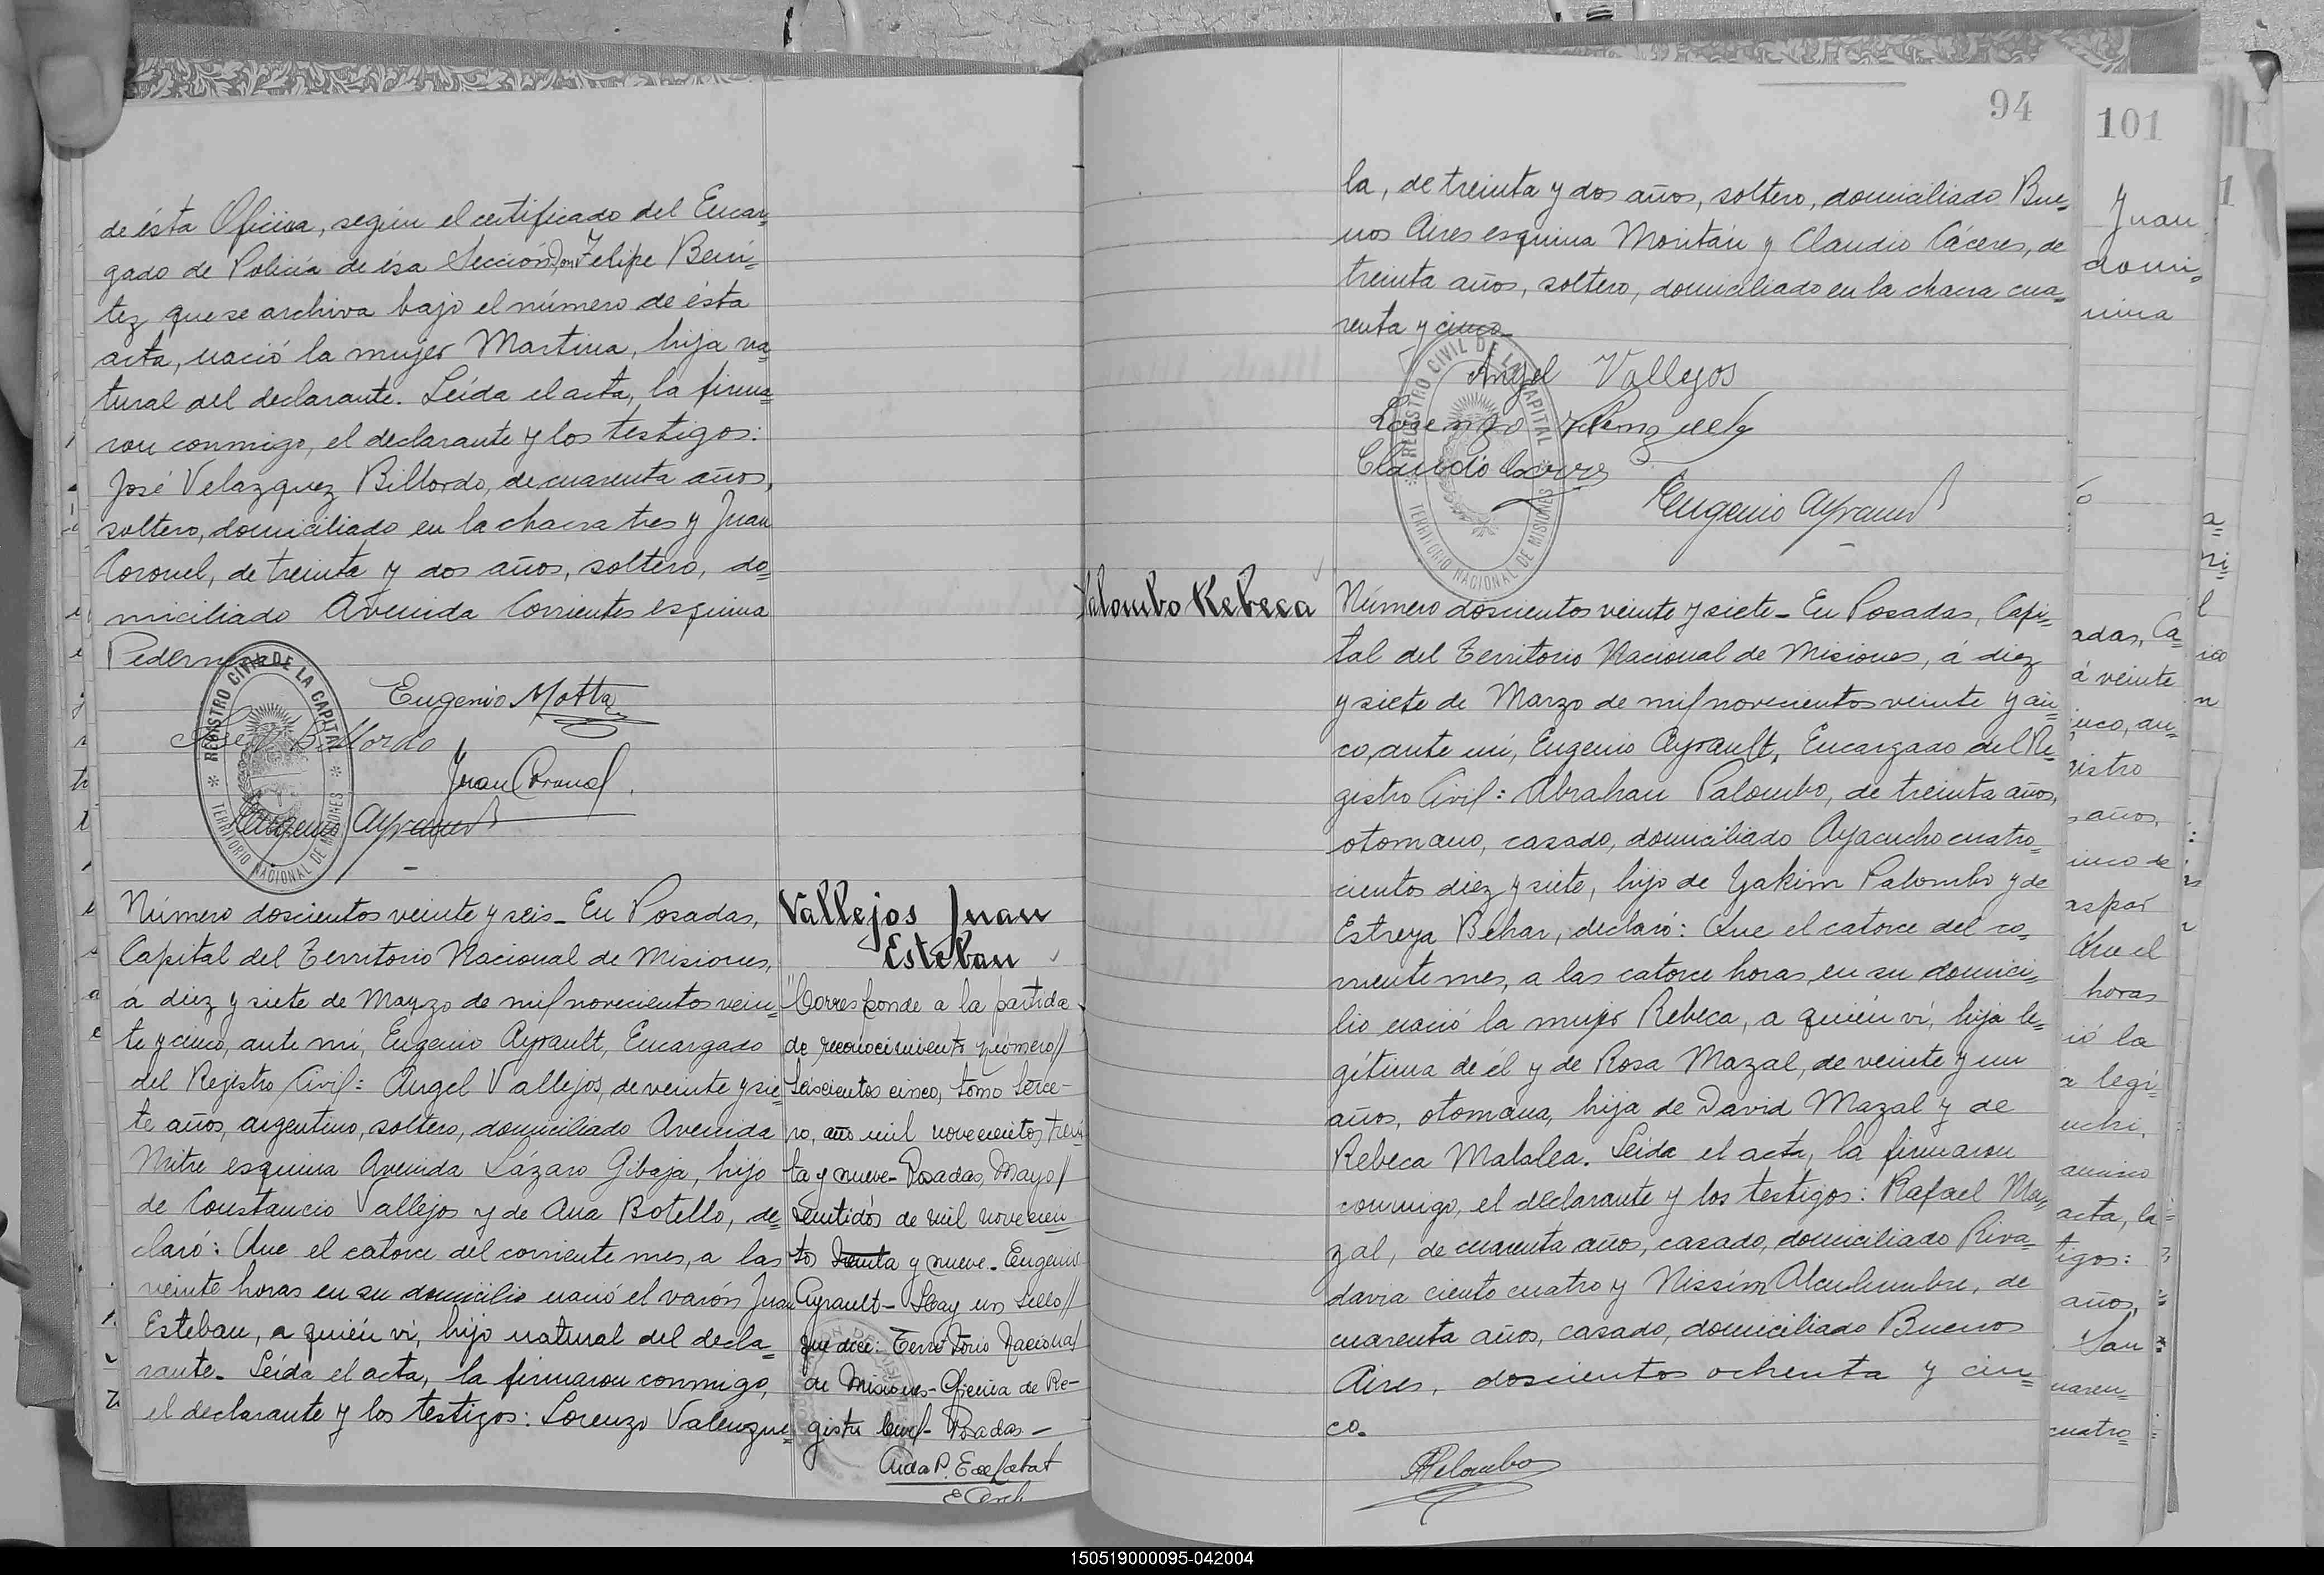 de ésta Oficina, según el certificado del Encar=
gado de Policía de ésa Sección Don Felipe Bení=
tez que se archiva bajo el número de ésta
acta, nació la mujer Martina, hija na=
tural del declarante. Leída el acta, la firma=
ron conmigo, el declarante y los testigos:
José Velazquez Billordo, de cuarenta años,
soltero, domiciliado en la chacra tres y Juan
Coronel, de treinta y dos años, soltero, do=
miciliado Avenida Corrientes esquina
Pedernera
REGISTRO CIVIL DE LA CAPITAL
TERRITORIO NACIONAL DE MISIONES
Eugenio Motta
Billordo
Juan Coronel
Eugenio Ayrault
Número doscientos veinte y seis_ En Posadas,
Capital del Territorio Nacional de Misiones,
á diez y siete de Marzo de mil novecientos vein=
te y cinco, ante mí, Eugenio Ayrault, Encargado
del Registro Civil: Angel Vallejos, de veinte y sie=
te años, argentino, soltero, domiciliado Avenida
Mitre esquina Avenida Lázaro Gibaja, hijo
de Constancio Vallejos y de Ana Botello, de=
claró: Que el catorce del corriente mes, a las
veinte horas en su domicilio nació el varón Juan
Esteban, a quién vi, hijo natural del decla=
rante. Leída el acta, la firmaron conmigo,
el declarante y los testigos: Lorenzo Valenzue=
Vallejos Juan
Esteban
"Corresponde a la partida
de reconocimiento número//
seiscientos cinco, tomo terce-
ro, año mil novecientos trein
ta y nueve- Posadas, Mayo/
veintidós de mil novecien
tos treinta y nueve- Eugenio
Ayrault- Hay un sello//
que dice: Territorio Nacional
de Misiones- Oficina de Re-
gistro Civil- Posadas-
94
la, de treinta y dos años, soltero, domiciliado Bue=
nos Aires esquina Moritán y Claudio Cáceres, de
treinta años, soltero, domiciliado en la chacra cua=
renta y cinco_
Angel Vallejos
REGISTRO CIVIL DE LA CAPITAL
TERRITORIO NACIONAL DE MISIONES
Lorenzo Valenzuela
Claudio Caceres
Eugenio Ayrault
Palombo Rebeca
Número doscientos veinte y siete_ En Posadas, Capi=
tal del Territorio Nacional de Misiones, á diez
y siete de Marzo de mil novecientos veinte y cin=
co, ante mí, Eugenio Ayrault, Encargado del Re=
gistro Civil: Abrahan Palombo, de treinta años,
otomano, casado, domiciliado Ayacucho cuatro=
cientos diez y siete, hijo de Yakim Palombo y de
Estreya Behar, declaró: Que el catorce del co=
rriente mes, a las catorce horas, en su domici=
lio nació la mujer Rebeca, a quién vi, hija le=
gítima de él y de Rosa Mazal, de veinte y un
años, otomana, hija de David Mazal y de
Rebeca Malalea. Leída el acta, la firmaron
conmigo, el declarante y los testigos: Rafael Ma=
zal, de cuarenta años, casado, domiciliado Riva=
davia ciento cuatro y Nissim Alculumbre, de
cuarenta años, casado, domiciliado Buenos
Aires, doscientos ochenta y cin=
co.
APalombo
101
Juan
domi=
nina
adas, Ca=
á veinte
nco, an=
gistro
años,
aspar
Que el
horas
ió la
a legí
uchi,
acta, la
tigos:
años,
San
uaren=
cuatro
150519000095-042004